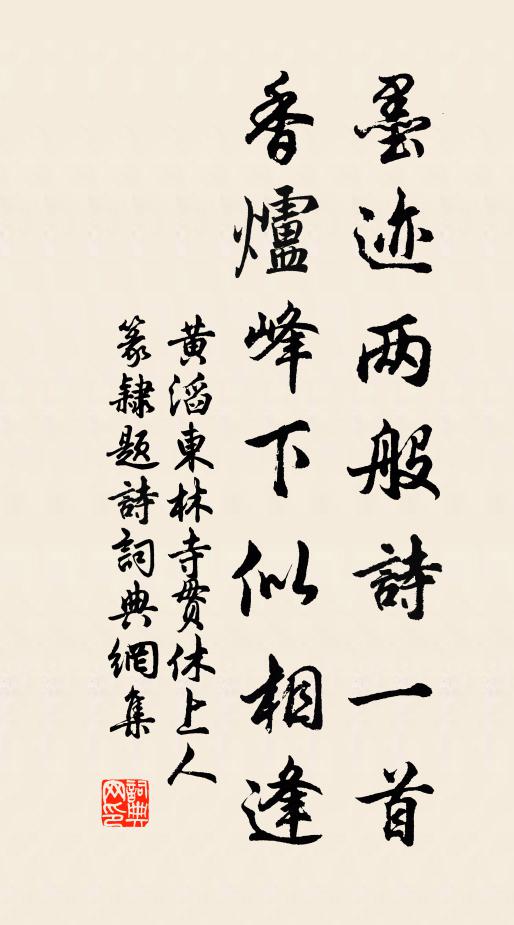 墨迹两般詩一首
香爐峰下似相逢
黄滔東林寺貫休上人
篆隸題詩詞典網集
詞典
网印